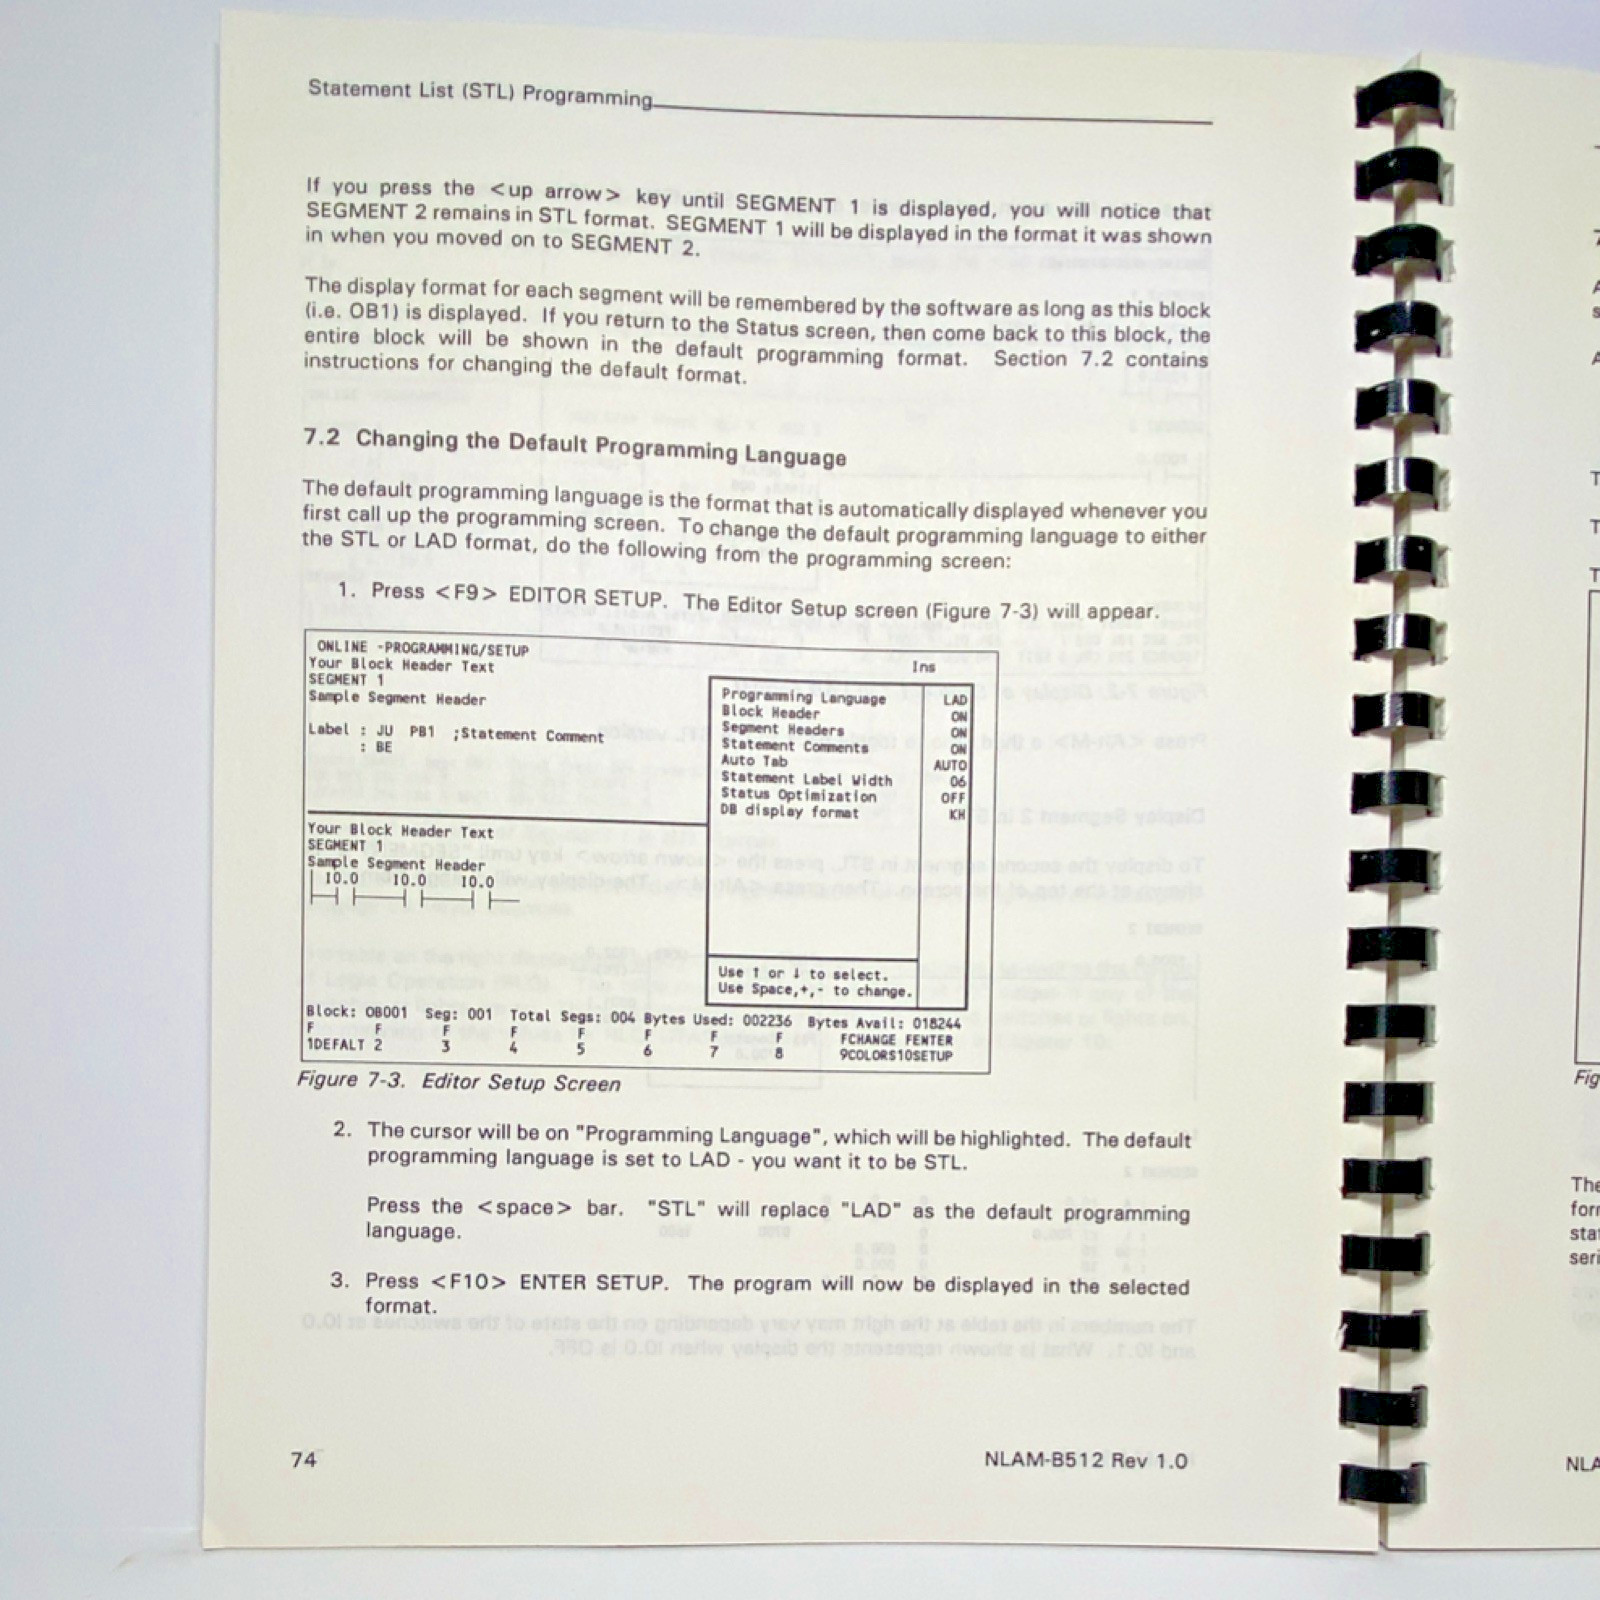 Statement List (STL) Programming
If you press the <up arrow> key until SEGMENT 1 is displayed, you will notice that
SEGMENT 2 remains in STL format. SEGMENT 1 will be displayed in the format it was shown
in when you moved on to SEGMENT 2.
The display format for each segment will be remembered by the software as long as this block
(i.e. OB1) is displayed. If you return to the Status screen, then come back to this block, the
entire block will be shown in the default programming format. Section 7.2 contains
instructions for changing the default format.
7.2 Changing the Default Programming Language
The default programming language is the format that is automatically displayed whenever you
first call up the programming screen. To change the default programming language to either
the STL or LAD format, do the following from the programming screen:
1. Press <F9> EDITOR SETUP. The Editor Setup screen (Figure 7-3) will appear.
ONLINE -PROGRAMMING/SETUP
Your Block Header Text Ins
SEGMENT 1
Sample Segment Header
Label : JU PB1 ;Statement Comment
: BE
Programming Language LAD
Block Header ON
Segment Headers ON
Statement Comments ON
Auto Tab AUTO
Statement Label Width 06
Status Optimization OFF
DB display format KH
Your Block Header Text
SEGMENT 1
Sample Segment Header
10.0 10.0 10.0
Use ↑ or ↓ to select.
Use Space,+,- to change.
Block: OB001 Seg: 001 Total Segs: 004 Bytes Used: 002236 Bytes Avail: 018244
F F F F F F F F FCHANGE FENTER
1DEFALT 2 3 4 5 6 7 8 9COLORS10SETUP
Figure 7-3. Editor Setup Screen
2. The cursor will be on "Programming Language", which will be highlighted. The default
programming language is set to LAD - you want it to be STL.
Press the <space> bar. "STL" will replace "LAD" as the default programming
language.
3. Press <F10> ENTER SETUP. The program will now be displayed in the selected
format.
74 NLAM-B512 Rev 1.0